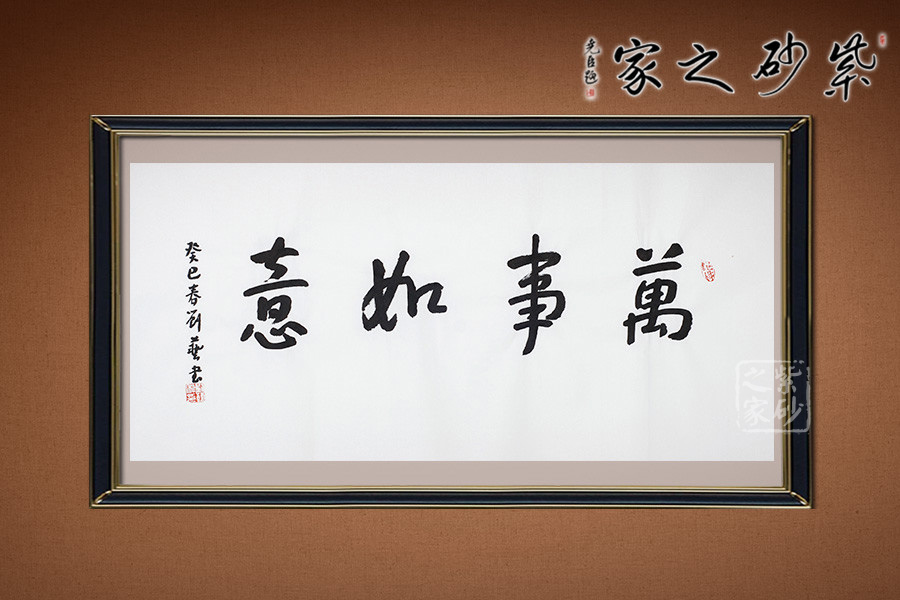 紫砂之家
萬事如意
癸巳春劉藝書
紫砂
之家